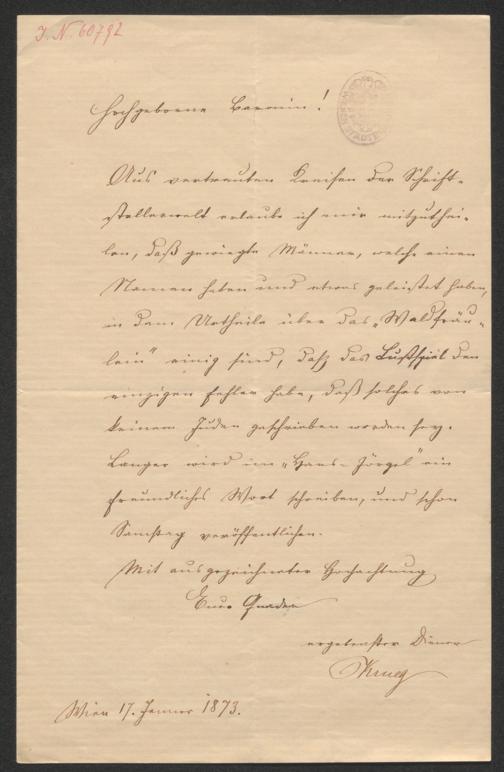 I. N. 60792
Hochgeborne Baronin!
Aus vertrauten Kreisen der Schrift-
stellerwelt erlaube ich mir mitzuthei-
len, daß gewiegte Männer, welche einen
Namen haben und etwas geleistet haben,
in dem Urtheile über das „Waldfräu-
lein" einig sind, daß das Lustspiel den
einzigen Fehler habe, daß solches von
keinem Juden geschrieben worden sey.
Langer wird im „Hans-Jörgel" ein
freundliches Wort schreiben, und schon
Samstag veröffentlichen.
Mit ausgezeichneter Hochachtung
Euer Gnaden
ergebenster Diener
Krueg
Wien 17. Jenner 1873.